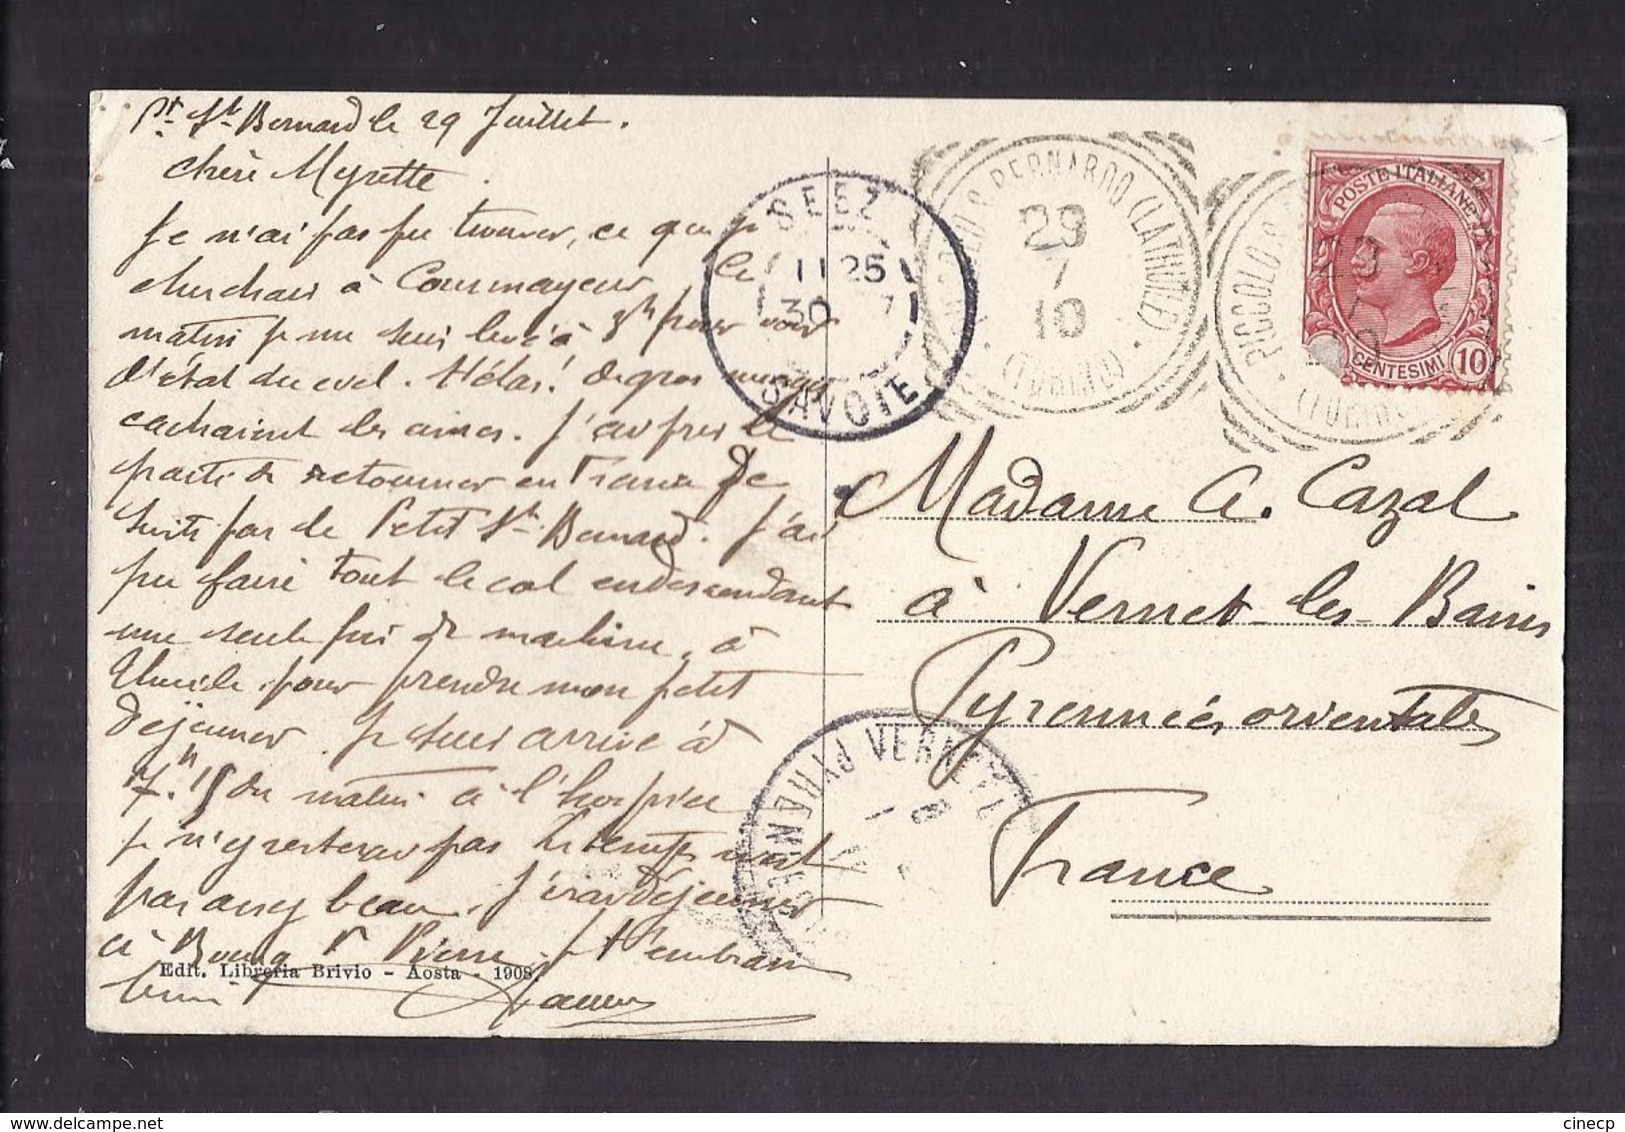 Pt St Bernard le 29 Juillet.
Chère Myrette.
Je n'ai pas pu trouver, ce que je
cherchais à Courmayeur. Ce
matin je me suis levé à 3h pour voir
l'état du ciel. Hélas! de gros nuages
cachaient les cimes. J'ai pris le
parti de retourner en France de
suite par le Petit St Bernard. J'ai
pu faire tout le col en descendant
une seule fois de machine, à
Thuile pour prendre mon petit
déjeuner. Je suis arrivé à
7h 15 du matin à l'hospice
je n'y resterai pas le temps n'est
pas assez beau. J'irai déjeuner
à Bourg St Pierre. Je t'embrasse
bien
Edit. Libreria Brivio - Aosta - 1908.
SEEZ
11 25
30 7
SAVOIE
PICCOLO S. BERNARDO (LATHUILE)
29
7
10
(TORINO)
PICCOLO S.
(TORINO)
POSTE ITALIANE
CENTESIMI 10
Madame A. Cazal
à Vernet-les-Bains
Pyrennées orientales
France
VERNET
PYRENEES
cinecp